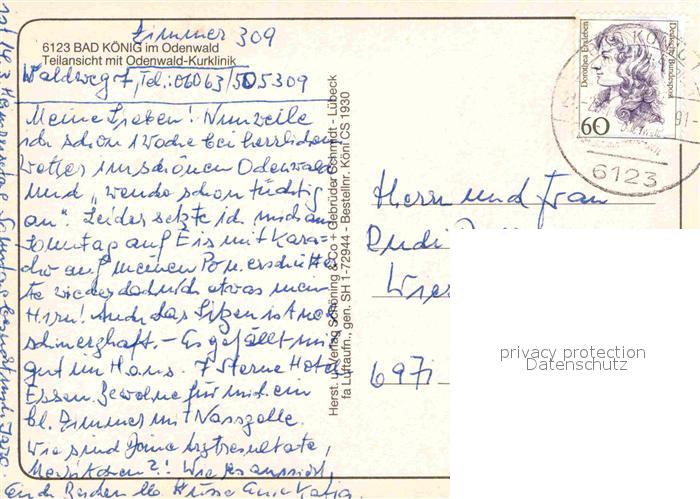 Zimmer 309
6123 BAD KÖNIG im Odenwald
Teilansicht mit Odenwald-Kurklinik
Waldweg 7, Tel.: 06063/505309
Meine Lieben! Nun weile
ich schon 1 Woche bei herrlichem
Wetter im schönen Odenwald
und "wende schon tüchtig
an". Leider setzte ich mich am
Sonntag auf Eis mit Kara-
cho auf meinen Po u. erschütter-
te wieder dadurch etwas mein
Hirn! Auch das Sitzen ist noch
schmerzhaft. – Es gefällt mir
gut im Haus. 7 Sterne Hotel
Essen. Bewohne für mich ein
kl. Zimmer mit Nasszelle.
Wie sind Deine Arztresultate,
Wie es aussieht,
Euch Beiden
Herst. u. Verlag Schöning & Co + Gebrüder Schmidt - Lübeck
fa Luftaufn., gen. SH 1-72944 - Bestellnr. Köni CS 1930
Dorothea Erxleben
Deutsche Bundespost
60
6123
Herrn und Frau
Rudi
697
privacy protection
Datenschutz